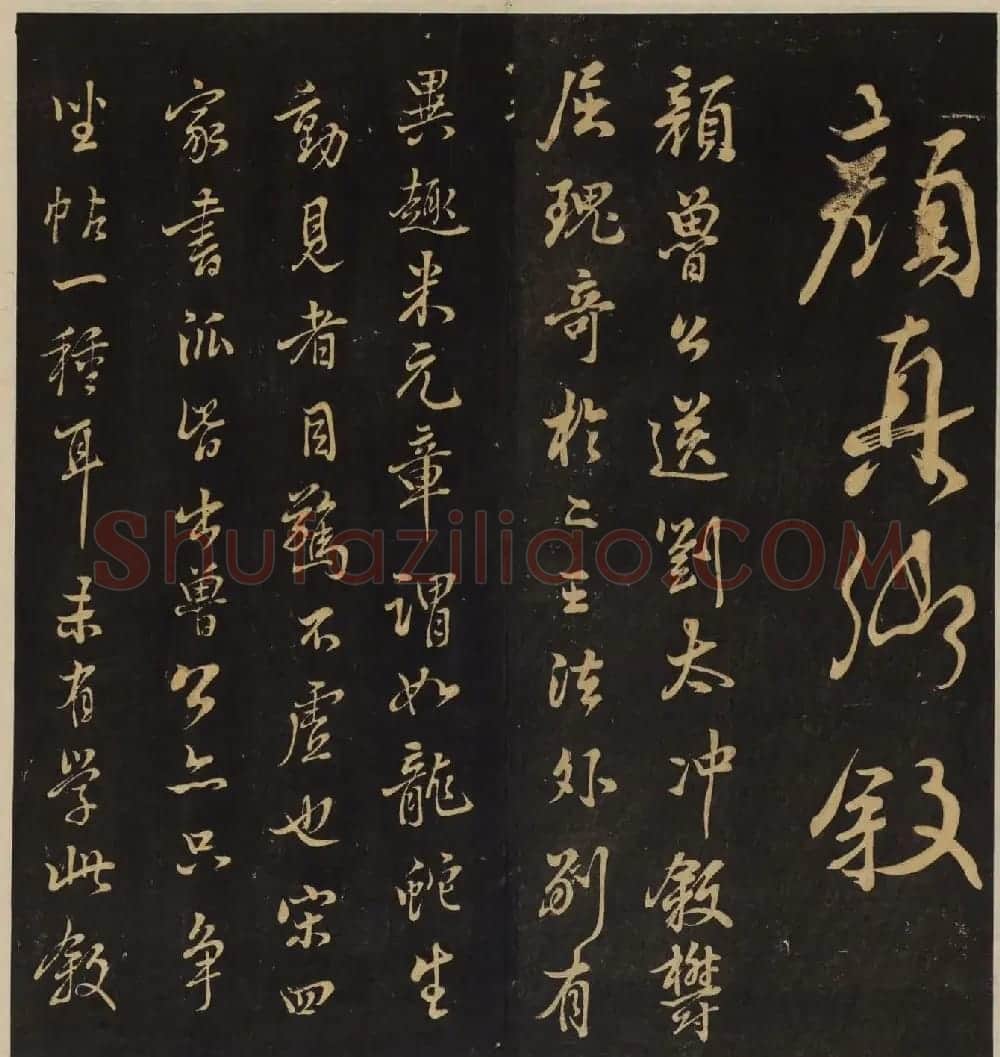 顏真卿叙
顏魯公送劉太冲叙欝
屈瑰奇於二王法外别有
異趣米元章謂如龍蛇生
動見者目驚不虛也宋四
家書派皆出魯公亦只争
坐帖一種耳未有学此叙
Shufaziliao.COM